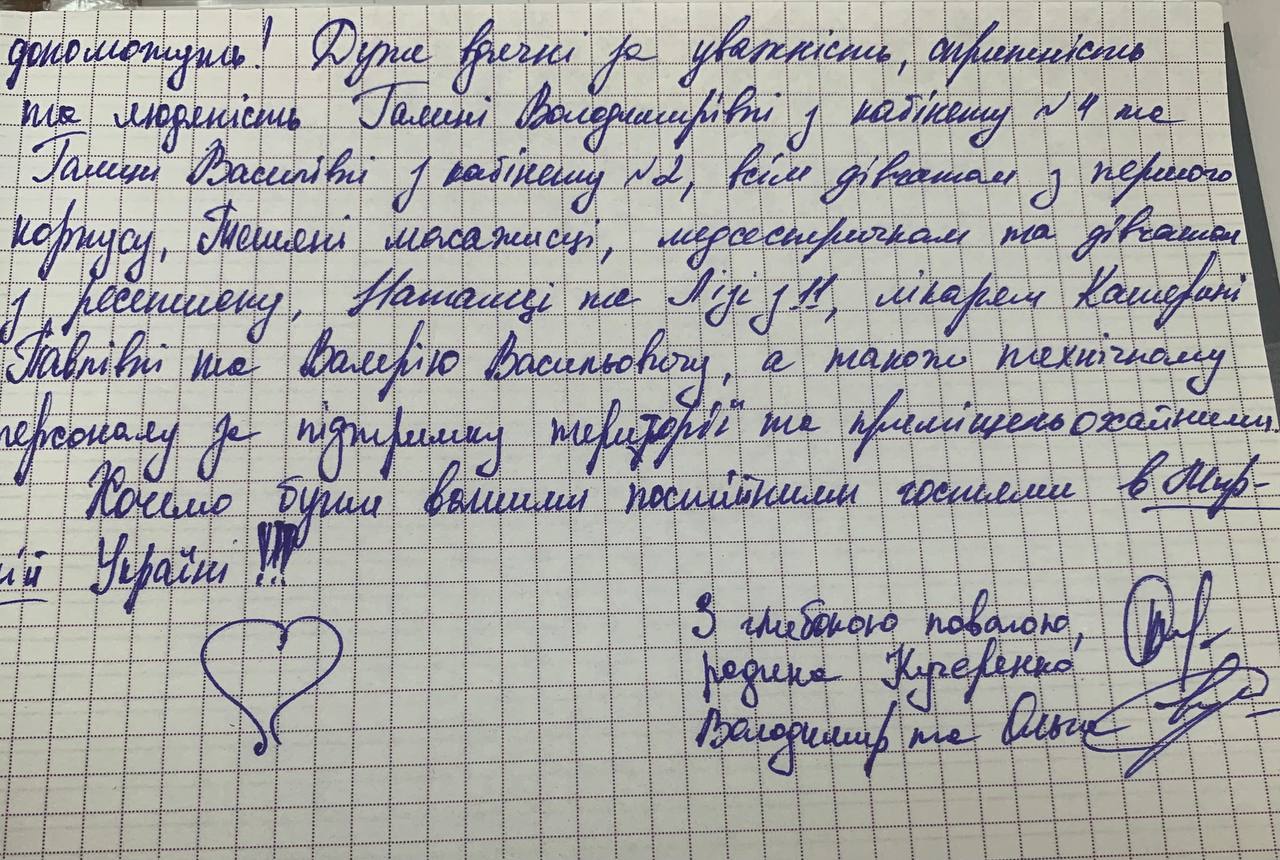 допоможуть! Дуже вдячні за уважність, спритність
та людяність Галині Володимирівні з кабінету №4 та
Галині Василівні з кабінету №2, всім дівчатам з першого
корпусу, Тетяні масажисці, медсестричкам та дівчатам
з ресепшену, Наташці та Лізі з 11, лікарям Катерині
Павлівні та Валерію Васильовичу, а також технічному
персоналу за підтримку території та приміщень охайними.
Хочемо бути вашими постійними гостями в Мир-
ній Україні!!!
З глибокою повагою,
родина Кучеренко
Володимир та Ольга